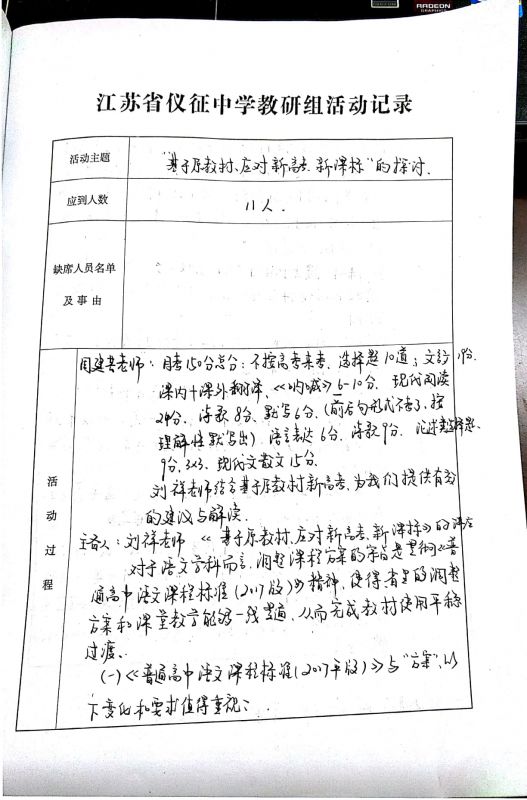 RADEON
GRAPHICS
江苏省仪征中学教研组活动记录
活动主题
"基于原教材、应对新高考、新课标"的探讨.
应到人数
11人.
缺席人员名单
及事由
活动过程
周建芸老师：月考150分总分：不按高考来考. 选择题10道；文言19分.
课内+课外翻译、《呐喊》6-10分. 现代阅读
24分、诗歌8分、默写6分.（前后句形式不考了、按
理解性默写出）语言表达6分、诗歌9分. 论述类选择题.
9分、3×3、现代文散文15分.
刘祥老师结合基于原教材新高考、为我们提供有效
的建议与解读.
主备人：刘祥老师 《基于原教材、应对新高考、新课标》的讲座
对于语文学科而言，调整课程方案的宗旨是贯彻《普
通高中语文课程标准（2017版）》精神，使得省里的调整
方案和课堂教学能够一线贯通，从而完成教材使用平稳
过渡.
(一)《普通高中语文课程标准（2017年版）》与"方案"，以
下变化和要求值得重视：